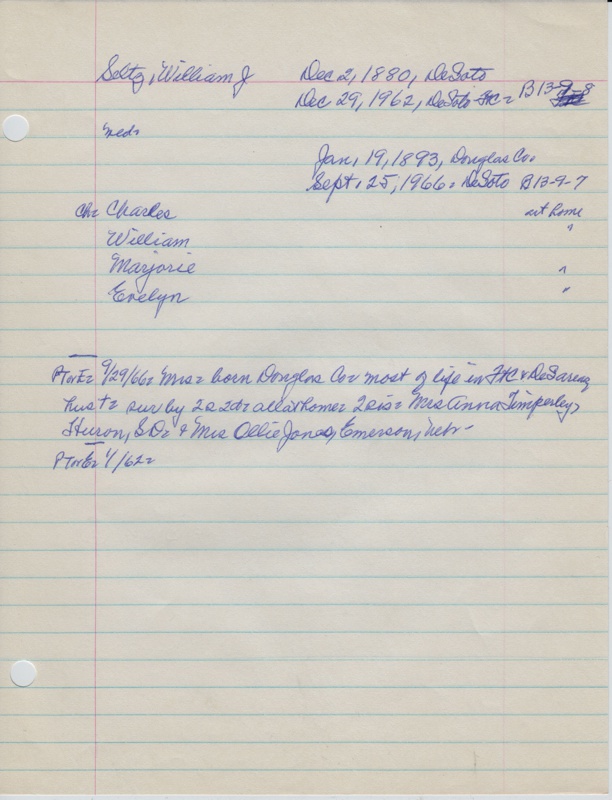 Seltz, William J Dec 2, 1880, DeSoto
Dec 29, 1962, DeSoto FtC= B13-9-8
Neds
Jan, 19, 1893, Douglas Co.
Sept. 25, 1966. DeSoto B13-9-7
Ch= Charles at home
William "
Marjorie "
Evelyn "
PTorE= 9/29/66= Mrs= born Douglas Co= most of life in FtC & DeSarea;
hus t= sur by 2s 2d= all at home= 2 sis= Mrs Anna Timperley,
Huron, S.D= & Mrs Ollie Jones, Emerson, Nebr-
PTorE= 1/62=